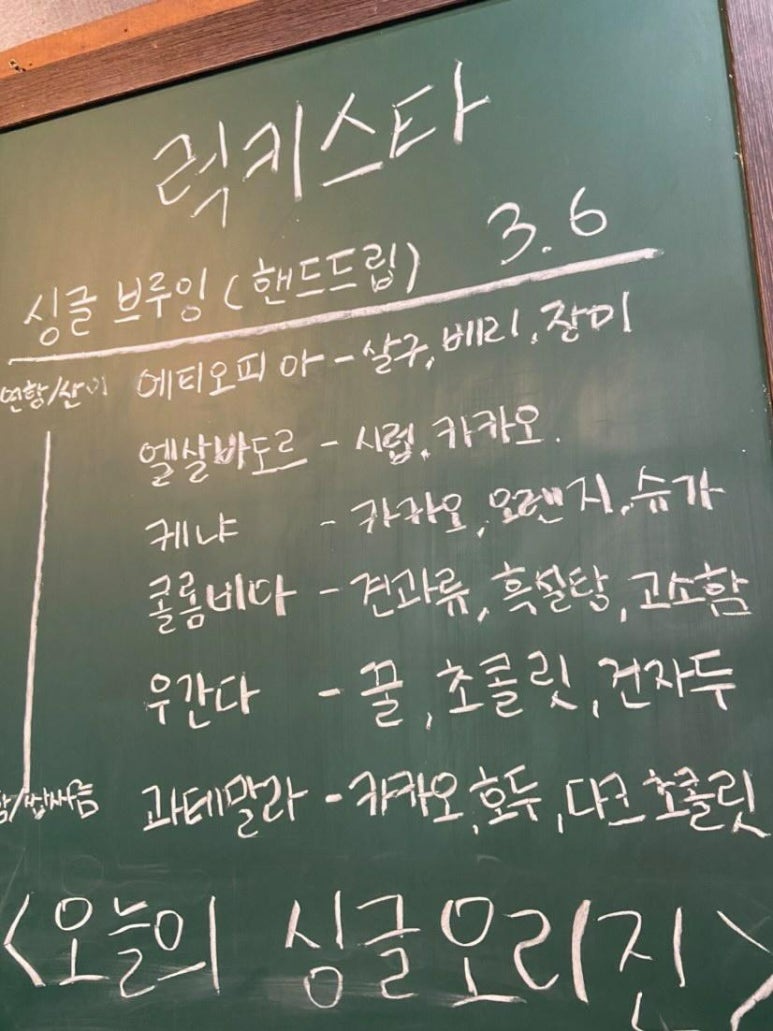 럭키스타
싱글 브루잉 (핸드드립) 3.6
연함/산미 에티오피아 - 살구, 베리, 장미
엘살바도르 - 시럽, 카카오.
케냐 - 카카오, 오렌지, 슈가
콜롬비아 - 견과류, 흑설탕, 고소함
우간다 - 꿀, 초콜릿, 건자두
함/쌉싸름 과테말라 - 카카오, 호두, 다크초콜릿
<오늘의 싱글오리진>